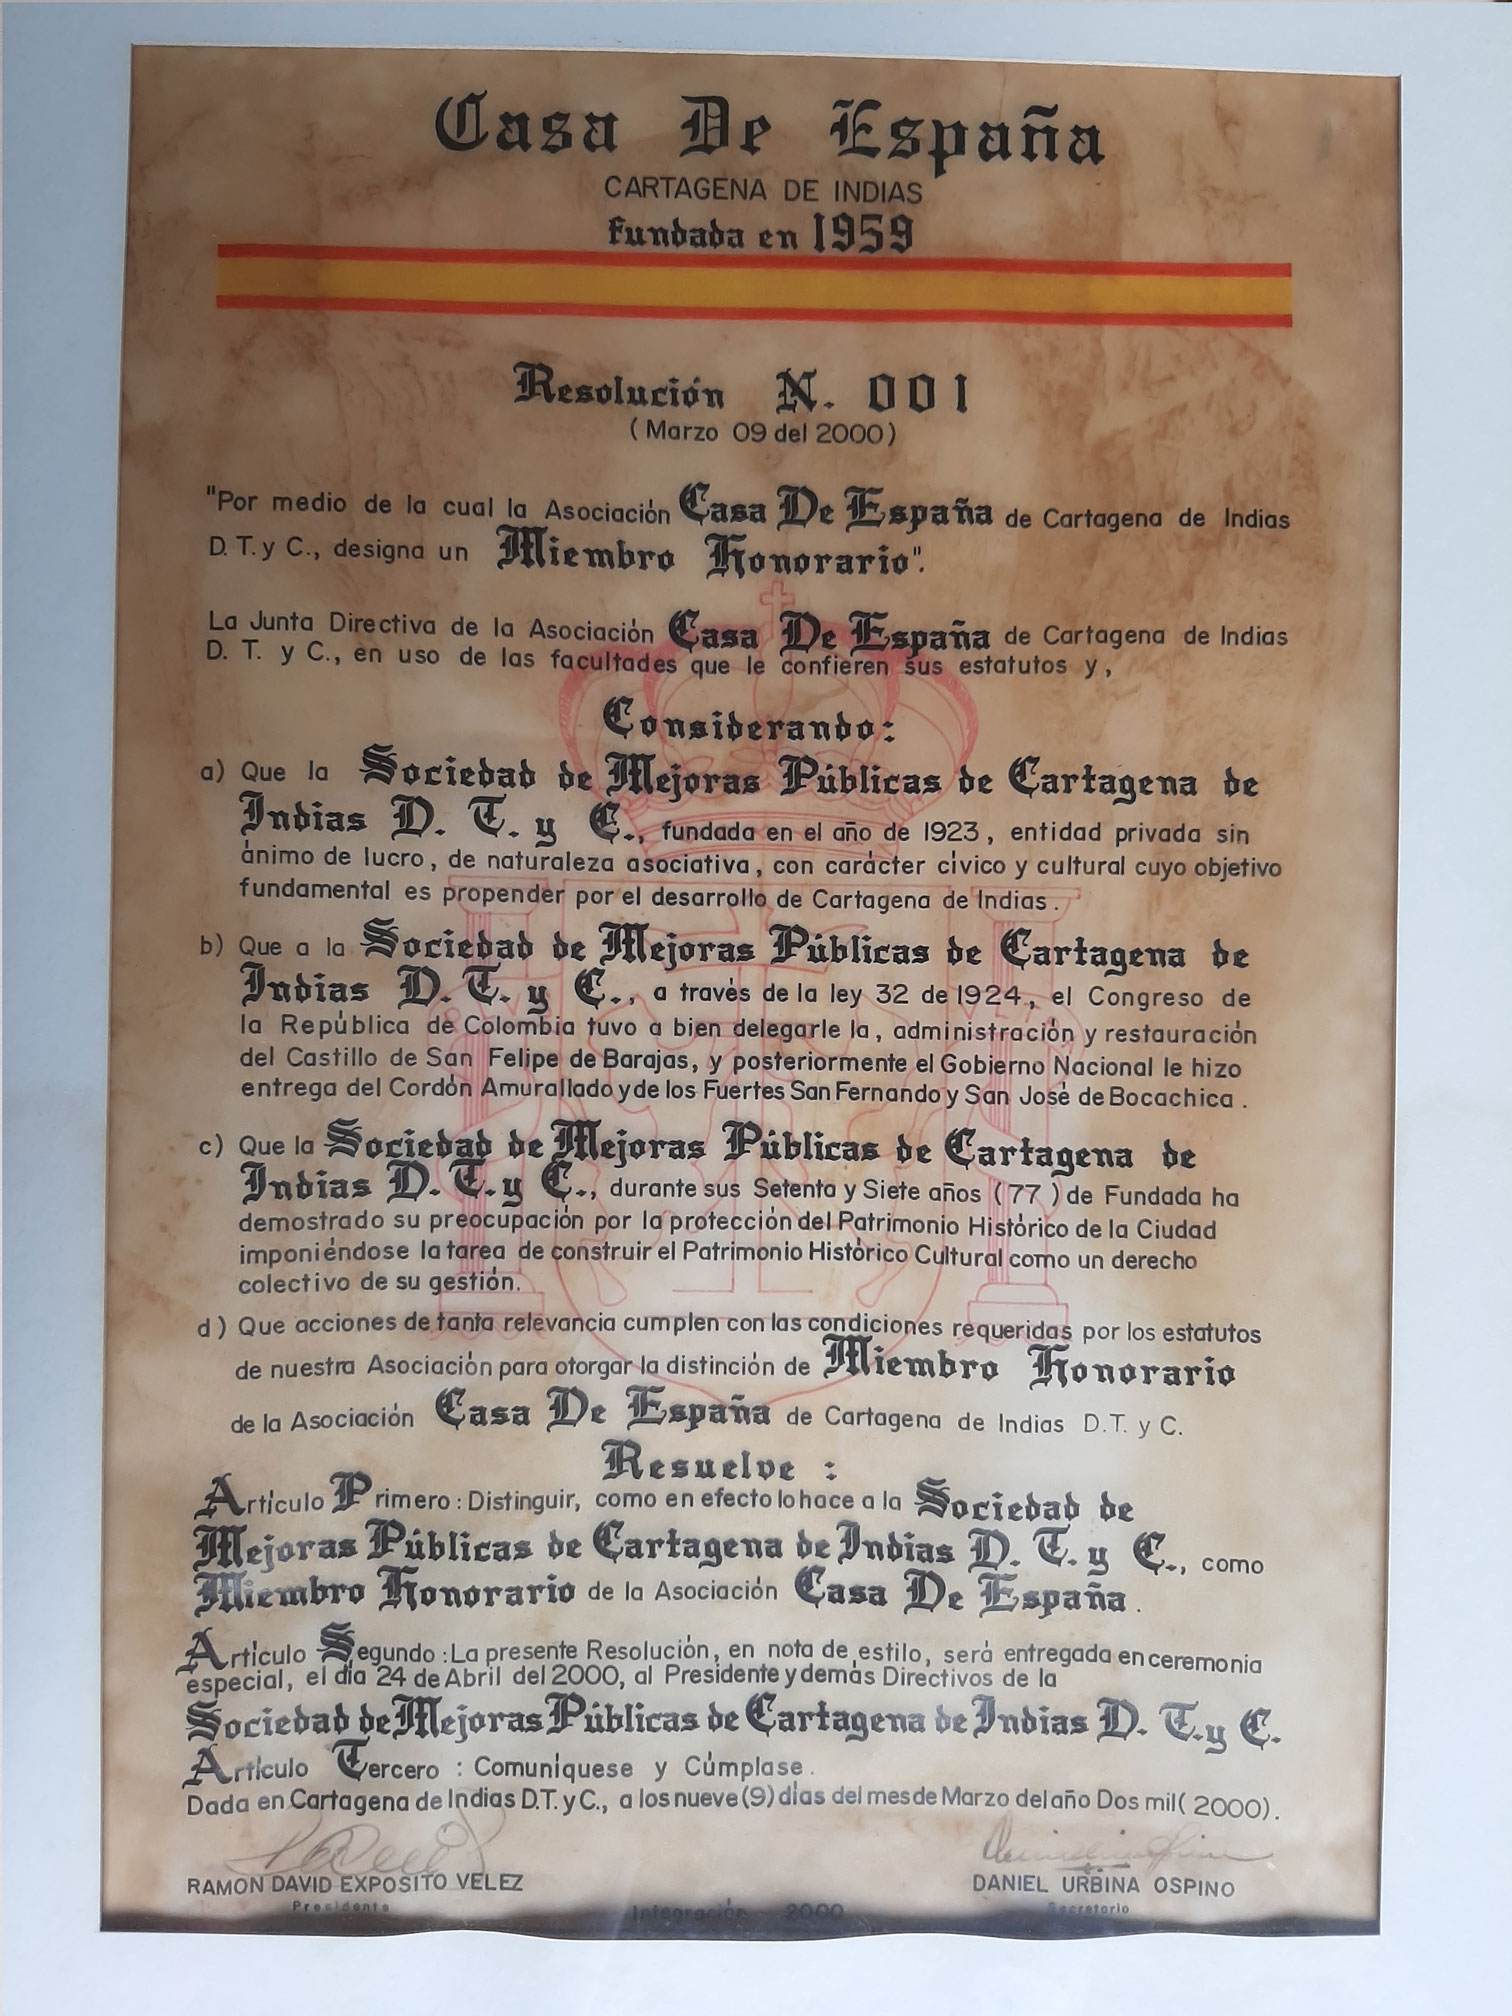 Casa De España
CARTAGENA DE INDIAS
fundada en 1959
Resolución N. 001
(Marzo 09 del 2000)
"Por medio de la cual la Asociación Casa De España de Cartagena de Indias
D. T. y C., designa un Miembro Honorario".
La Junta Directiva de la Asociación Casa De España de Cartagena de Indias
D. T. y C., en uso de las facultades que le confieren sus estatutos y,
Considerando:
a) Que la Sociedad de Mejoras Públicas de Cartagena de
Indias D. T. y C., fundada en el año de 1923, entidad privada sin
ánimo de lucro, de naturaleza asociativa, con carácter cívico y cultural cuyo objetivo
fundamental es propender por el desarrollo de Cartagena de Indias.
b) Que a la Sociedad de Mejoras Públicas de Cartagena de
Indias D. T. y C., a través de la ley 32 de 1924, el Congreso de
la República de Colombia tuvo a bien delegarle la, administración y restauración
del Castillo de San Felipe de Barajas, y posteriormente el Gobierno Nacional le hizo
entrega del Cordón Amurallado y de los Fuertes San Fernando y San José de Bocachica.
c) Que la Sociedad de Mejoras Públicas de Cartagena de
Indias D. T. y C., durante sus Setenta y Siete años (77) de Fundada ha
demostrado su preocupación por la protección del Patrimonio Histórico de la Ciudad
imponiéndose la tarea de construir el Patrimonio Histórico Cultural como un derecho
colectivo de su gestión.
d) Que acciones de tanta relevancia cumplen con las condiciones requeridas por los estatutos
de nuestra Asociación para otorgar la distinción de Miembro Honorario
de la Asociación Casa De España de Cartagena de Indias D. T. y C.
Resuelve :
Artículo Primero: Distinguir, como en efecto lo hace a la Sociedad de
Mejoras Públicas de Cartagena de Indias D. T. y C., como
Miembro Honorario de la Asociación Casa De España.
Artículo Segundo: La presente Resolución, en nota de estilo, será entregada en ceremonia
especial, el día 24 de Abril del 2000, al Presidente y demás Directivos de la
Sociedad de Mejoras Públicas de Cartagena de Indias D. T. y C.
Artículo Tercero : Comuníquese y Cúmplase.
Dada en Cartagena de Indias D.T. y C., a los nueve (9) días del mes de Marzo del año Dos mil (2000).
RAMON DAVID EXPOSITO VELEZ DANIEL URBINA OSPINO
Presidente Integración 2000 Secretario